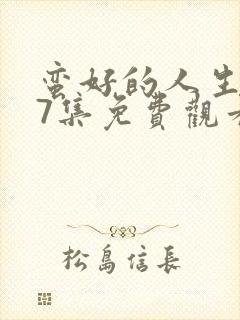 蛮好的人生
7集免費觀看
松島信長